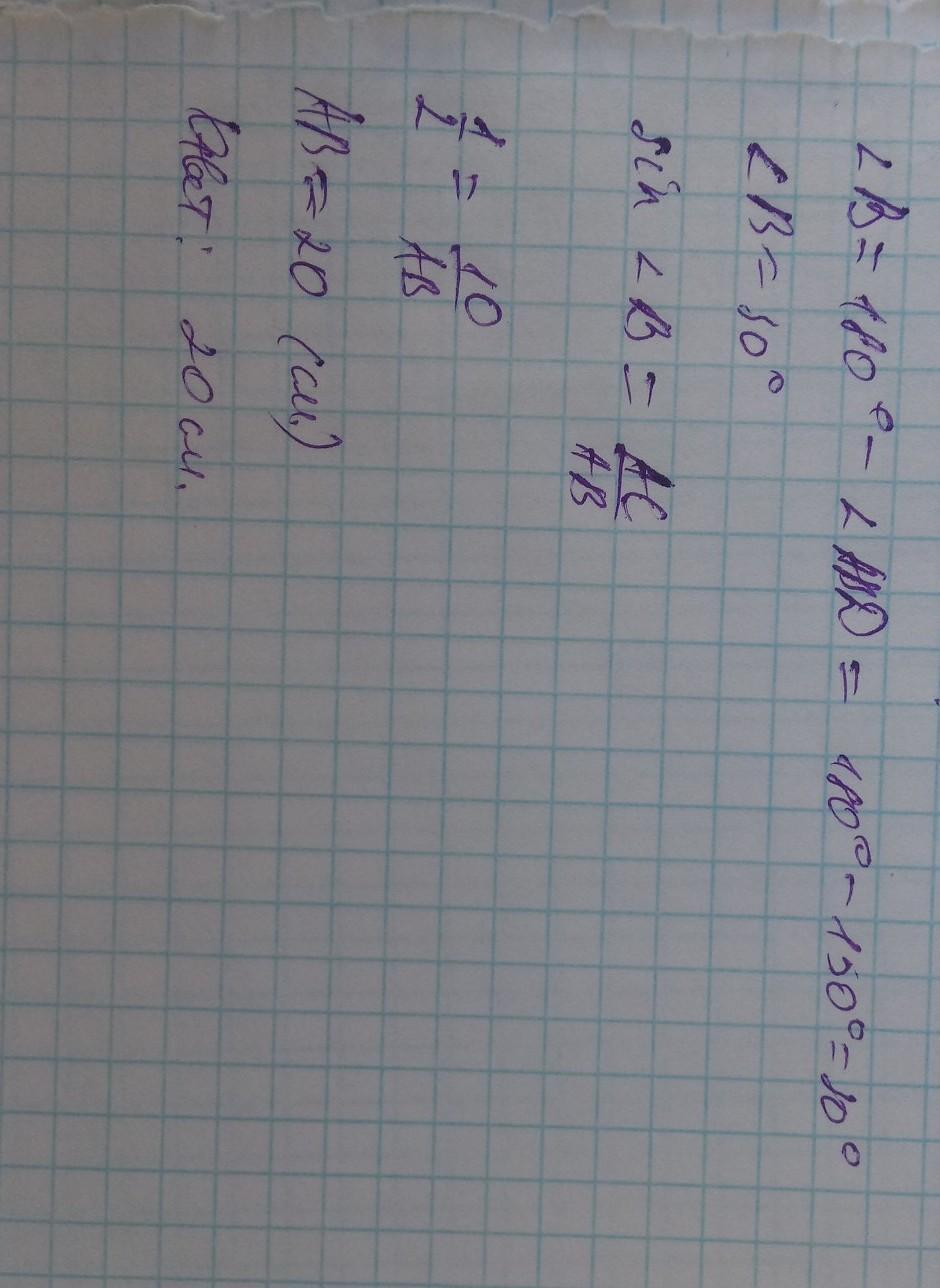 ∠B = 180° − ∠ABD = 180° − 150° = 30°
∠B = 30°
sin ∠B = AC/AB
1/2 = 10/AB
AB = 20 (см)
Ответ: 20 см.